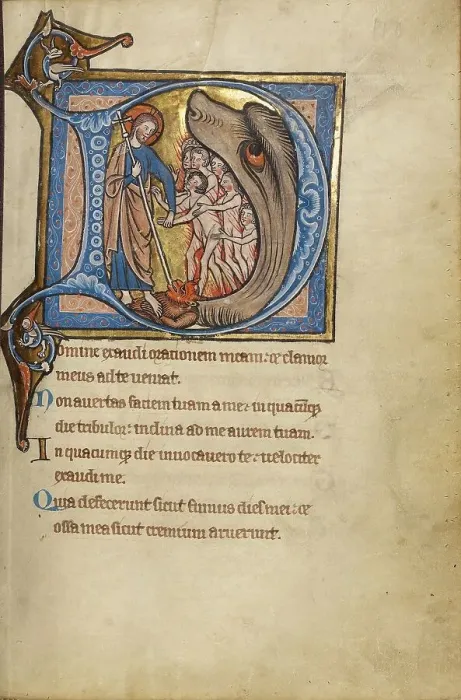 Domine exaudi orationem meam: ⁊ clamor
meus ad te ueniat.
Non auertas faciem tuam a me: in quacūq;
die tribulor: inclina ad me aurem tuam.
In quacumq; die inuocauero te: uelociter
exaudi me.
Quia defecerunt sicut fumus dies mei: ⁊
ossa mea sicut cremium aruerunt.